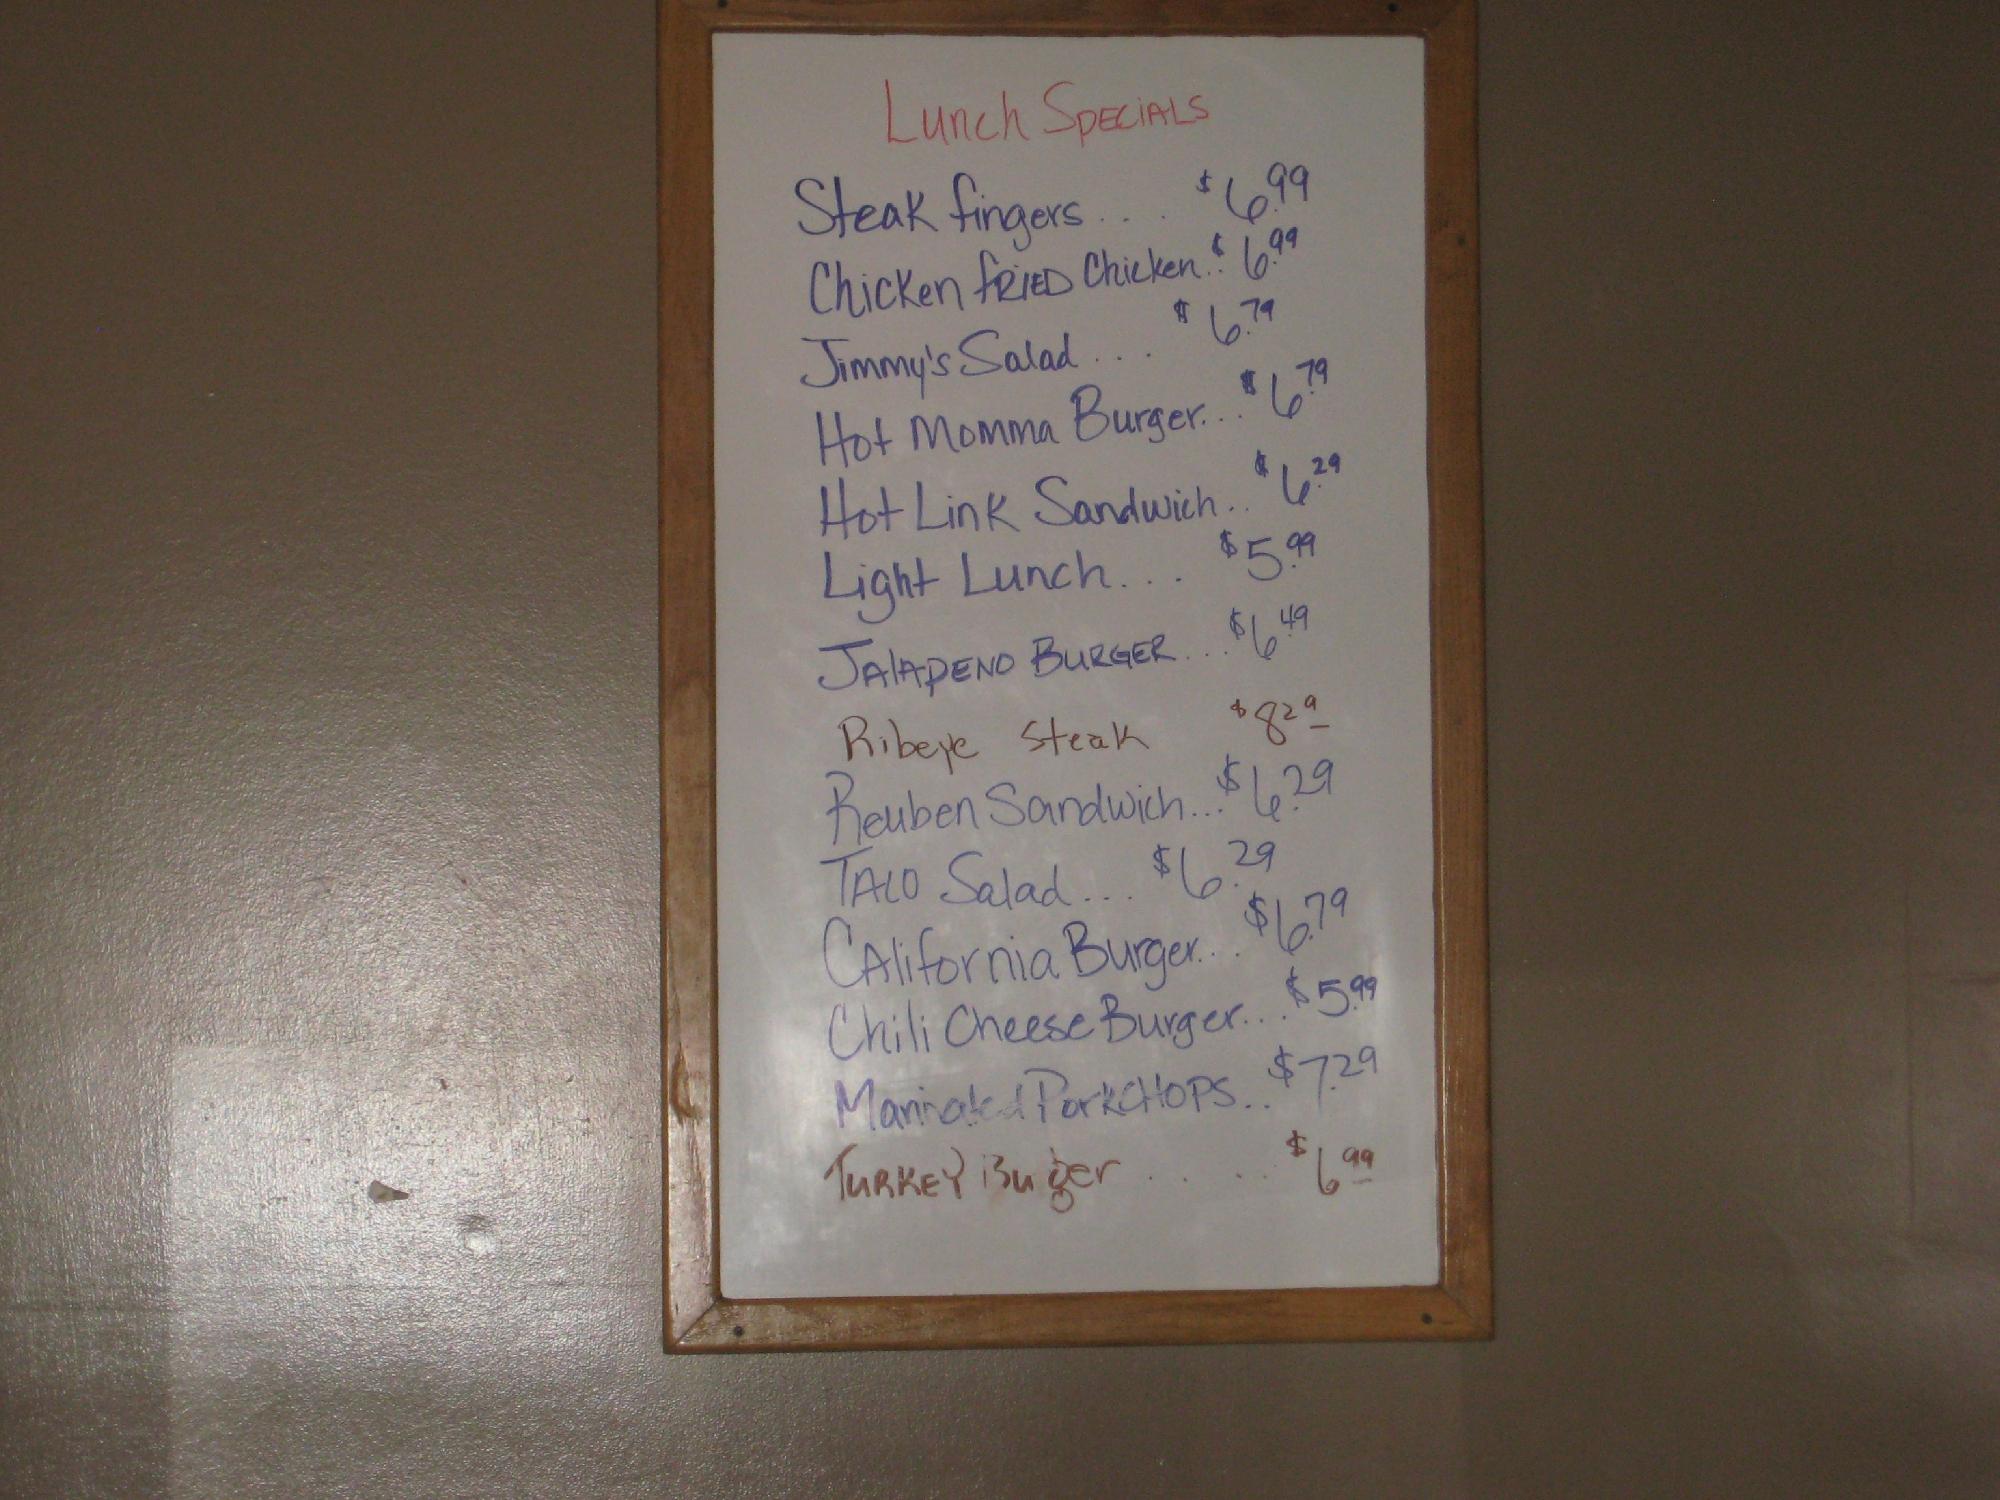 Lunch SPECIALS
Steak fingers . . . $6.99
Chicken fRIED Chicken.. $6.99
Jimmy's Salad . . . $6.79
Hot Momma Burger... $6.79
Hot Link Sandwich.. $6.29
Light Lunch... $5.99
JALAPENO BURGER... $6.49
Ribeye Steak $8 29
Reuben Sandwich... $6.29
TACO Salad... $6.29
CAlifornia Burger... $6.79
Chili Cheese Burger... $5.99
Marinated PorkCHOPS.. $7.29
TURKEY Burger . . . . . $6 99